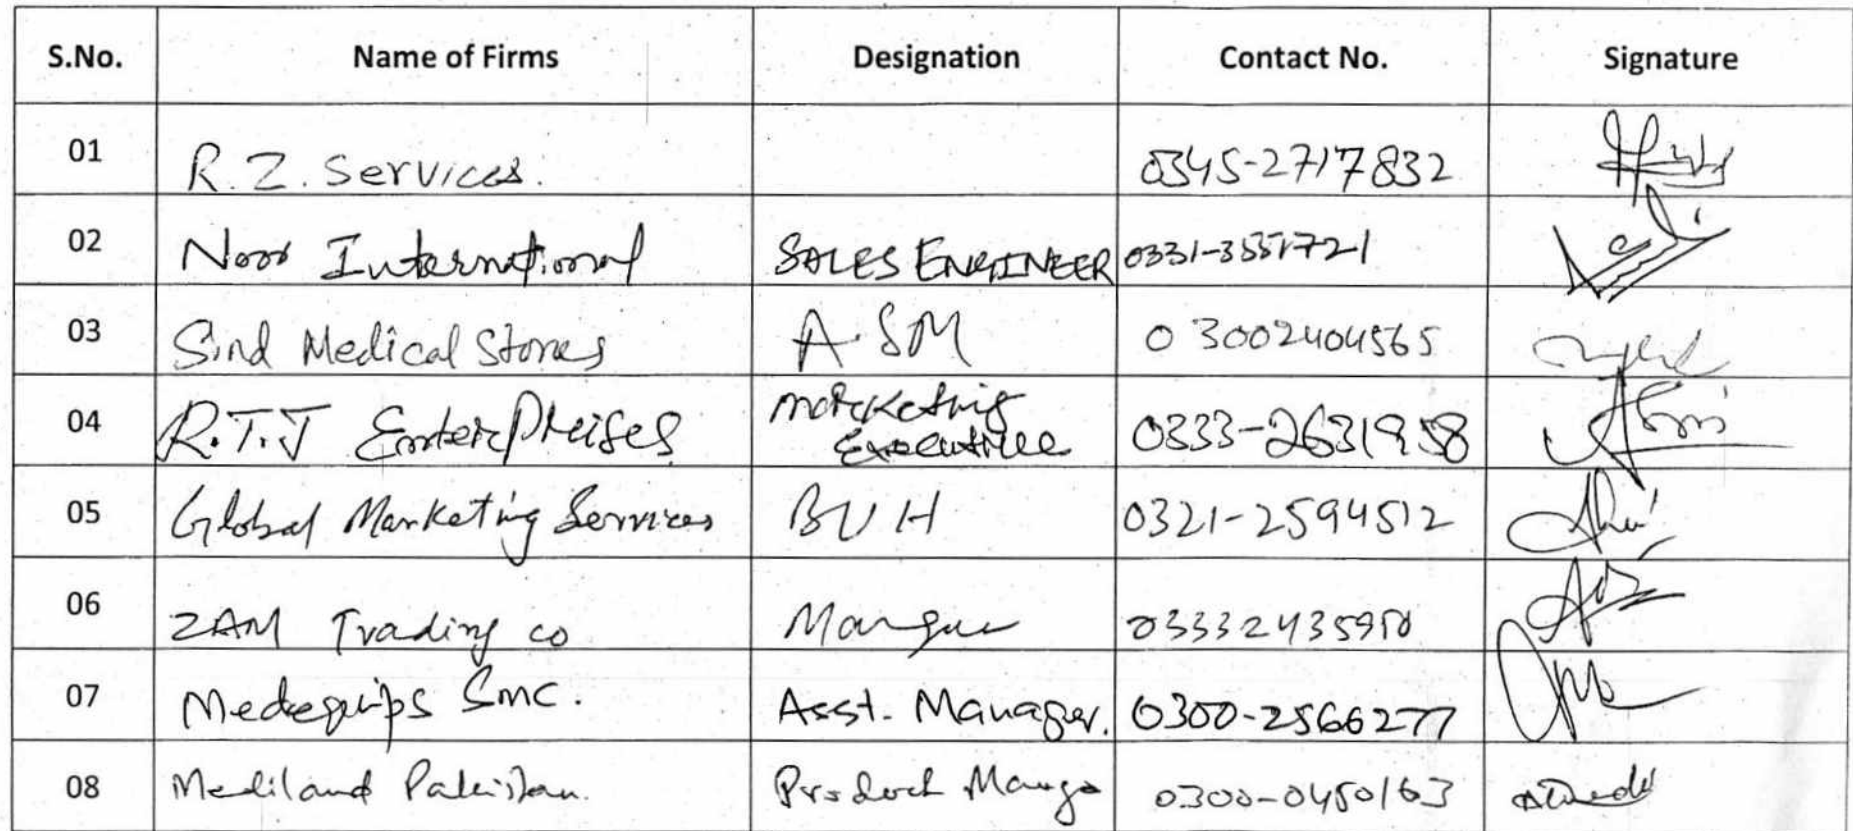 S.No. Name of Firms Designation Contact No. Signature
01 R.Z. Services. 0345-2717832
02 Noor International SALES ENGINEER 0331-3551721
03 Sind Medical Stores A.SM 03002404565
04 R.T.J Enterprises Marketing Executive 0333-2631958
05 Global Marketing Services BUH 0321-2594512
06 ZAM Trading co 
07 Medequips Smc. Asst. Manager. 0300-2566277
08 Mediland Pakistan. Product 0300-0450163